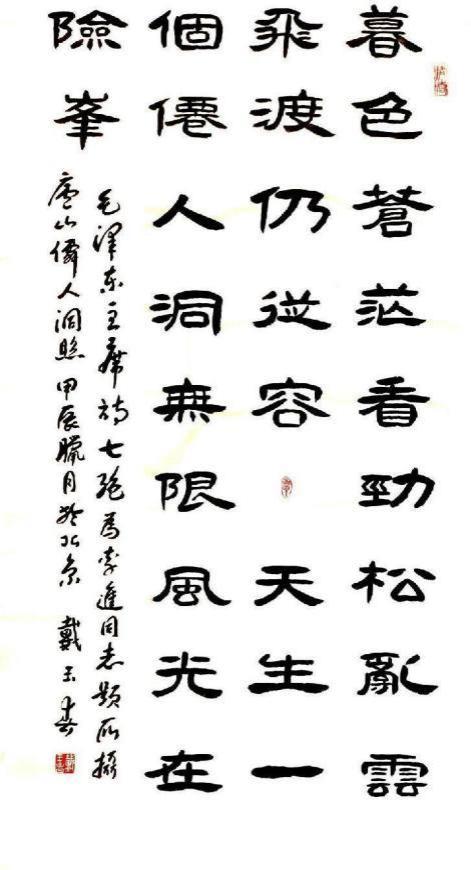 暮色蒼茫看勁松亂雲
飛渡仍從容天生一
個僊人洞無限風光在
險峯
毛澤东主席詩七絕為李進同志題所攝
廬山僊人洞照 甲辰臘月於北京 戴玉春